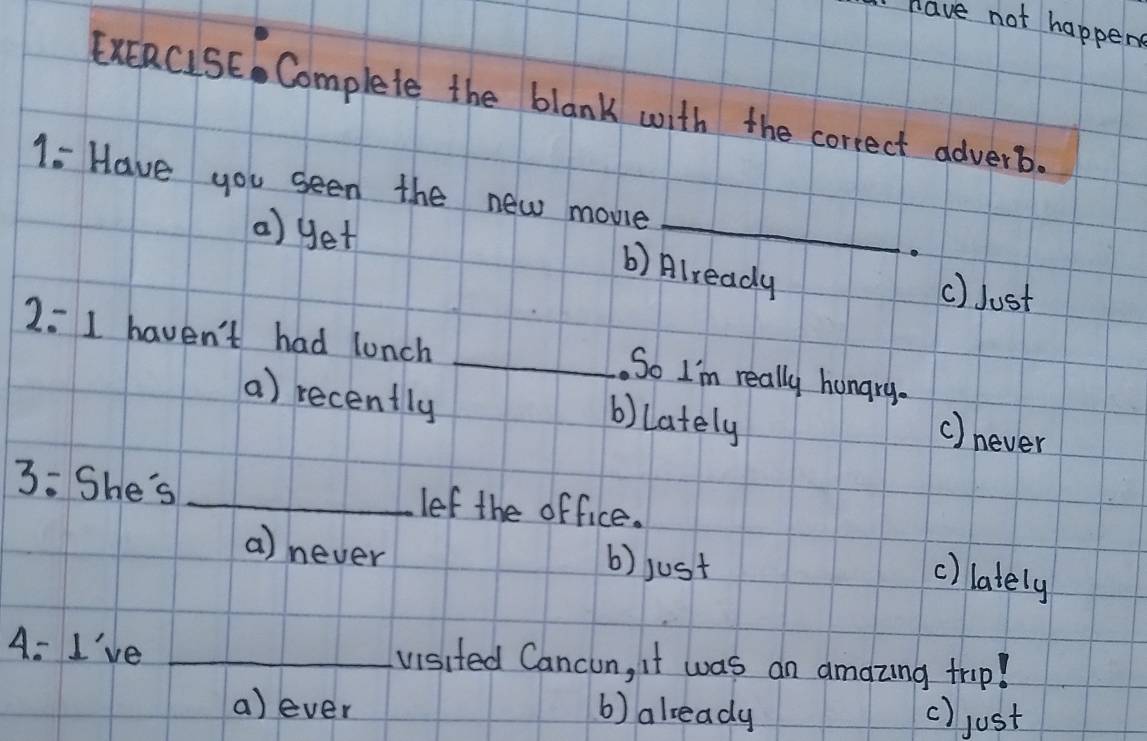 have not happen
EXERCISE: Complete the blank with the correct adverb.
1.- Have you seen the new movie ________.
a) yet b) Already c) Just
2.- I haven't had lunch ________. So I'm really hungry.
a) recently b) Lately c) never
3.- She's ________ lef the office.
a) never b) just c) lately
4.- I've ________ visited Cancun, it was an amazing trip!
a) ever b) already c) just